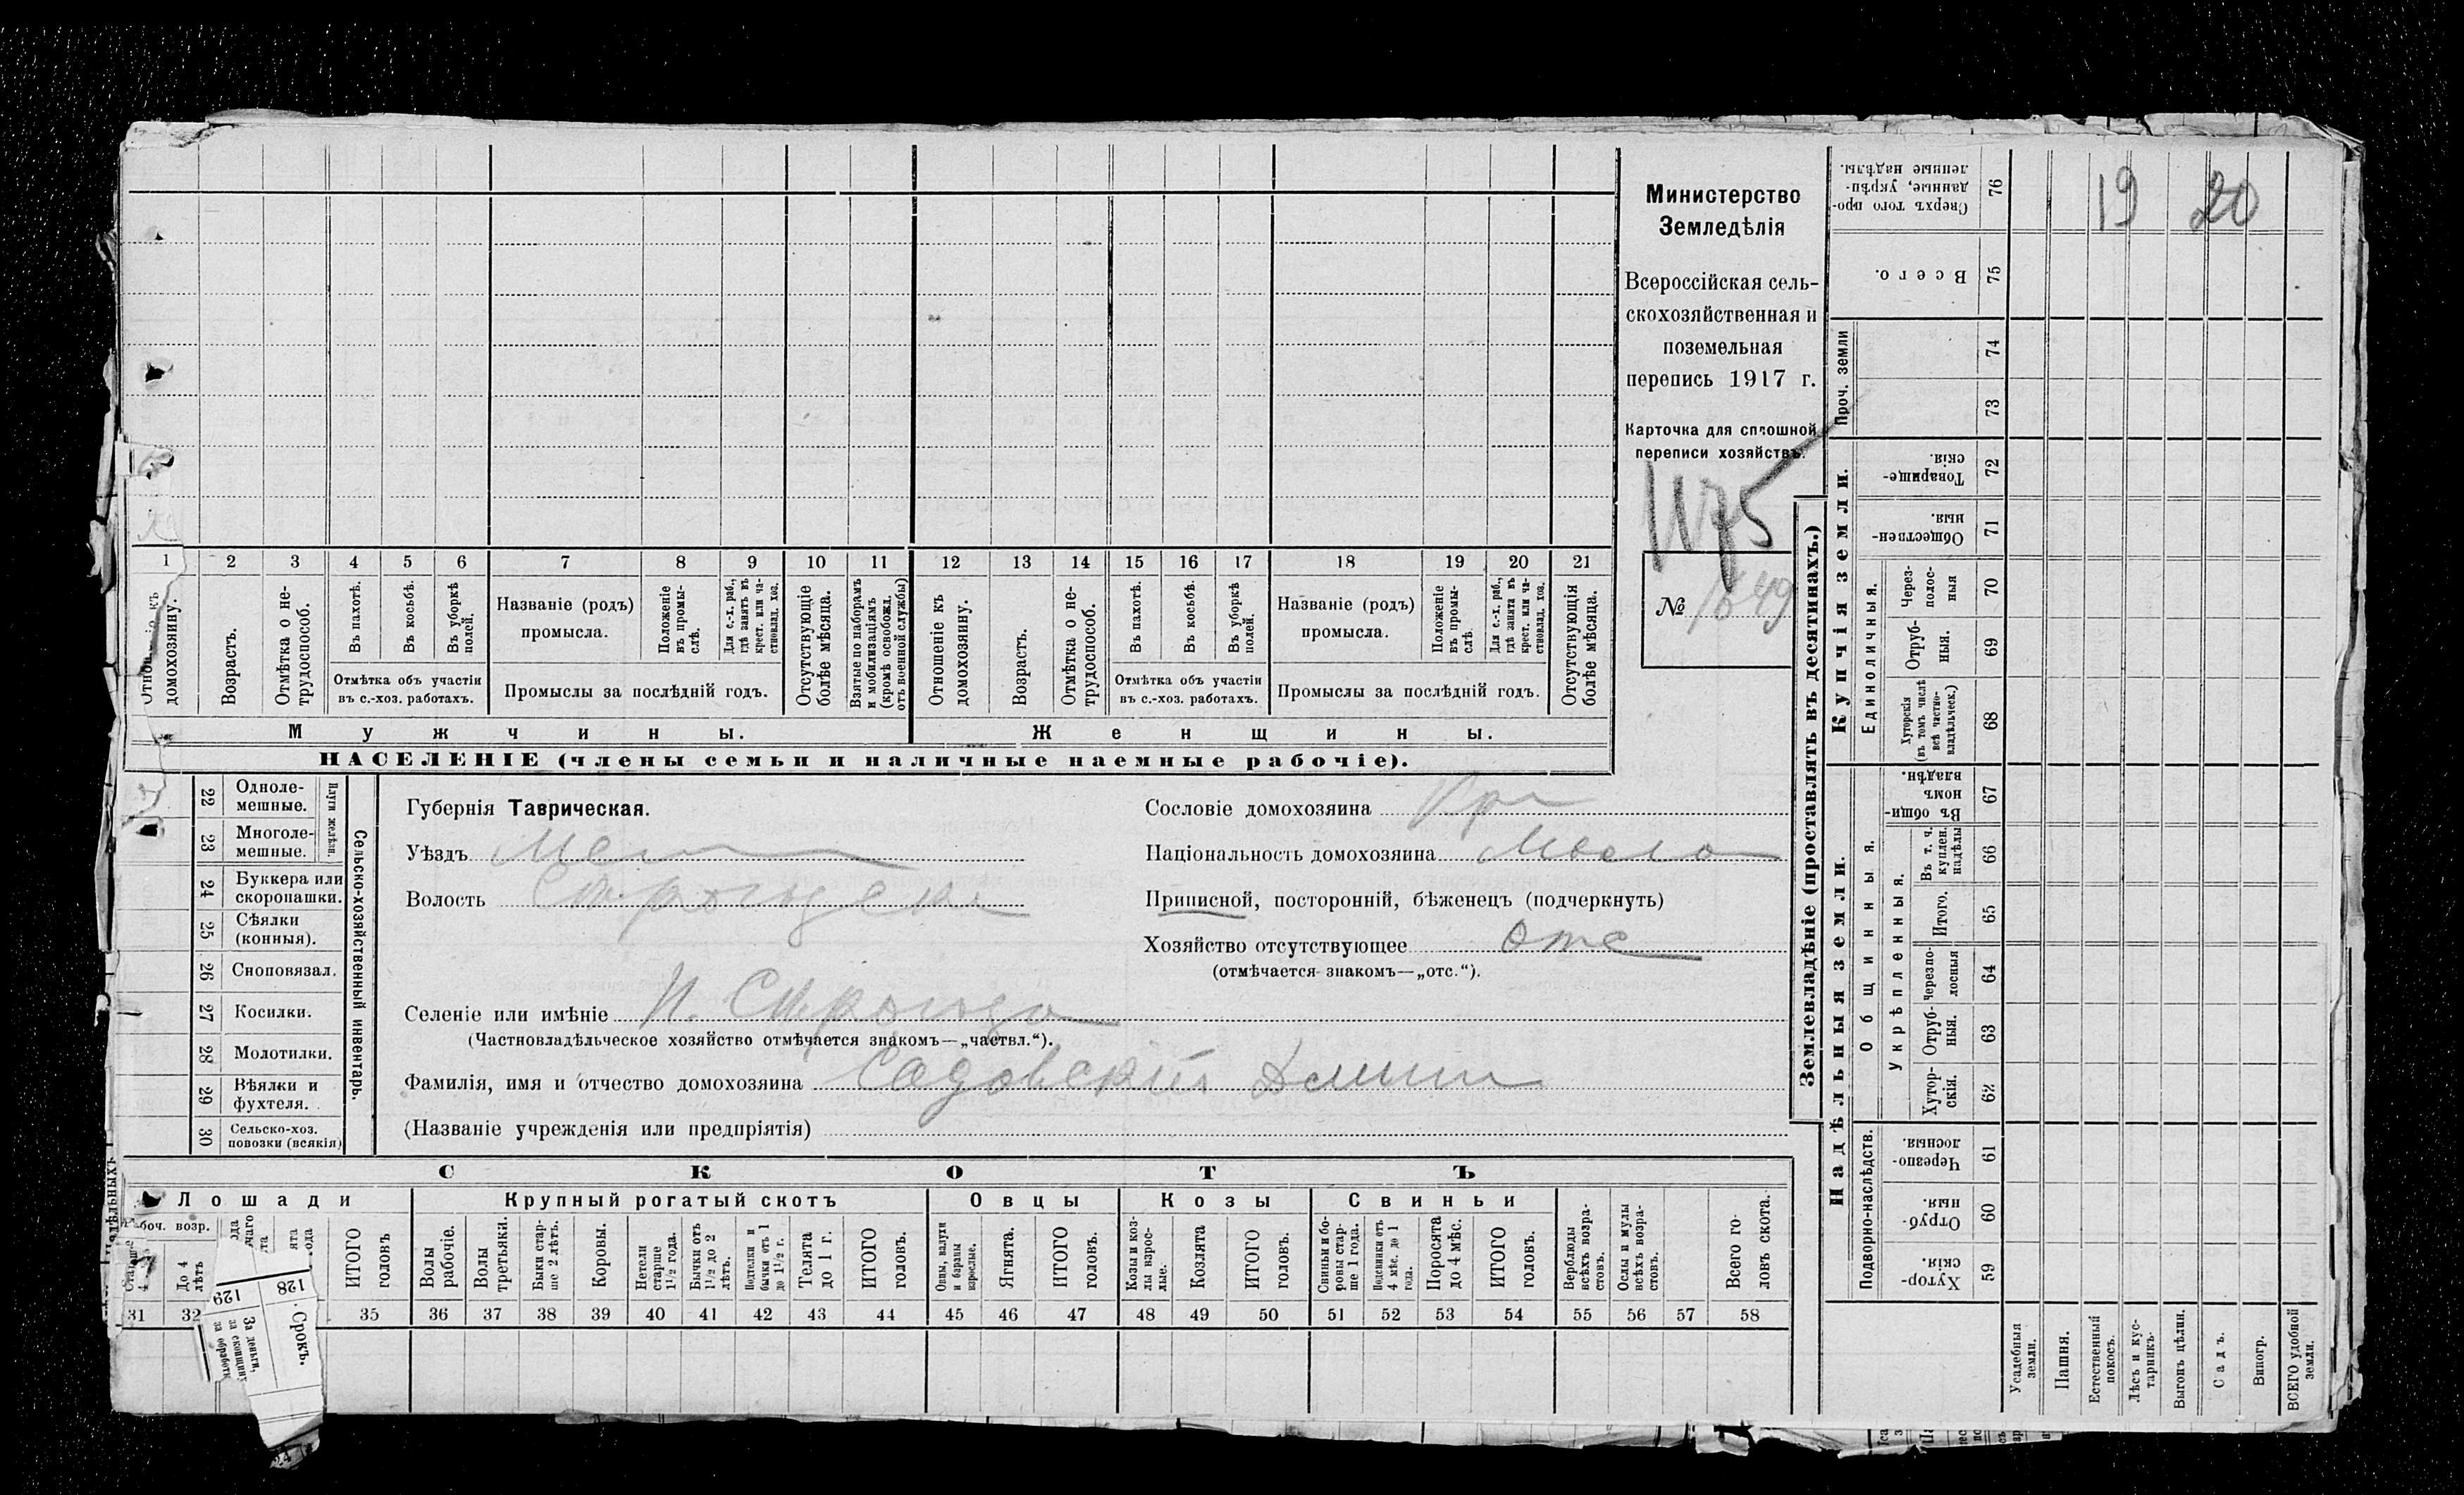 Министерство
Земледѣлія
Всероссійская сель-
скохозяйственная и
поземельная
перепись 1917 г.
Карточка для сплошной
переписи хозяйствъ.
1175
№ 1849
1 2 3 4 5 6 7 8 9 10 11 12 13 14 15 16 17 18 19 20 21
домохозяину.
Возрастъ.
Отмѣтка о не-
трудоспособ.
Въ пахотѣ.
Въ косьбѣ.
Въ уборкѣ
полей.
Отмѣтка объ участіи
въ с.-хоз. работахъ.
Названіе (родъ)
промысла.
Положеніе
въ промы-
слѣ.
Для с.-х. раб.,
гдѣ занятъ въ
крест. или ча-
стновлад. хоз.
Промыслы за послѣдній годъ.
Отсутствующіе
болѣе мѣсяца.
Взятые по наборамъ
и мобилизаціямъ
(кромѣ освобожд.
отъ военной службы)
Отношеніе къ
домохозяину.
Возрастъ.
Отмѣтка о не-
трудоспособ.
Въ пахотѣ.
Въ косьбѣ.
Въ уборкѣ
полей.
Отмѣтка объ участіи
въ с.-хоз. работахъ.
Названіе (родъ)
промысла.
Положеніе
въ промы-
слѣ.
Для с.-х. раб.,
гдѣ занята въ
крест. или ча-
стновлад. хоз.
Промыслы за послѣдній годъ.
Отсутствующія
болѣе мѣсяца.
Мужчины.
Женщины.
НАСЕЛЕНІЕ (члены семьи и наличные наемные рабочіе).
22 Одноле-
мешные.
23 Многоле-
мешные.
Плуги желѣзн.
24 Буккера или
скоропашки.
25 Сѣялки
(конныя).
26 Сноповязал.
27 Косилки.
28 Молотилки.
29 Вѣялки и
фухтеля.
30 Сельско-хоз.
повозки (всякія)
Сельско-хозяйственный инвентарь.
Губернія Таврическая.
Уѣздъ Мел
Волость
Селеніе или имѣніе Н. Сѣрогозы
(Частновладѣльческое хозяйство отмѣчается знакомъ—„частвл.“).
Фамилія, имя и отчество домохозяина Садовскій
(Названіе учрежденія или предпріятія)
Сословіе домохозяина Кр
Національность домохозяина Мало
Приписной, посторонній, бѣженецъ (подчеркнуть)
Хозяйство отсутствующее отс
(отмѣчается знакомъ—„отс.“).
СКОТЪ
Лошади
Крупный рогатый скотъ
Овцы
Козы
Свиньи
До 4
лѣтъ
ИТОГО
головъ
Волы
рабочіе.
Волы
третьяки.
Быки стар-
ше 2 лѣтъ.
Коровы.
Нетели
старше
1½ года.
Бычки отъ
1½ до 2
лѣтъ.
Подтелки и
бычки отъ 1
до 1½ г.
Телята
до 1 г.
ИТОГО
головъ.
Овцы, валухи
и бараны
взрослые.
Ягнята.
ИТОГО
головъ.
Козы и коз-
лы взрос-
лые.
Козлята
ИТОГО
головъ.
Свиньи и бо-
ровы стар-
ше 1 года.
Подсвинки отъ
4 мѣс. до 1
года.
Поросята
до 4 мѣс.
ИТОГО
головъ.
Верблюды
всѣхъ возра-
стовъ.
Ослы и мулы
всѣхъ возра-
стовъ.
Всего го-
ловъ скота.
31 32 35 36 37 38 39 40 41 42 43 44 45 46 47 48 49 50 51 52 53 54 55 56 57 58
128
129
Срокъ.
За деньги,
Землевладѣніе (проставлять въ десятинахъ.)
Купчія земли.
Надѣльныя земли.
Проч. земли
Единоличныя.
Общинныя.
Укрѣпленныя.
Подворно-наслѣдств.
Сверхъ того про-
данные, укрѣп-
ленные надѣлы.
76
19 20
Всего.
75
74
73
Товарище-
скія.
72
Обществен-
ныя.
71
Через-
полос-
ныя
70
Отруб-
ныя.
69
Хуторскія
(въ томъ числѣ
всѣ частно-
владѣльческ.)
68
Въ общи-
номъ
владѣн.
67
Въ т. ч.
куплен.
надѣлы
66
Итого.
65
черезпо-
лосныя
64
Отруб-
ныя.
63
Хутор-
скія.
62
Черезпо-
лосныя.
61
Отруб-
ныя.
60
Хутор-
скія.
59
Усадебныя
земли.
Пашня.
Естественный
покосъ.
Лѣсъ и кус-
тарникъ.
Выгонъ цѣлин.
Садъ.
Виногр.
ВСЕГО удобной
земли.